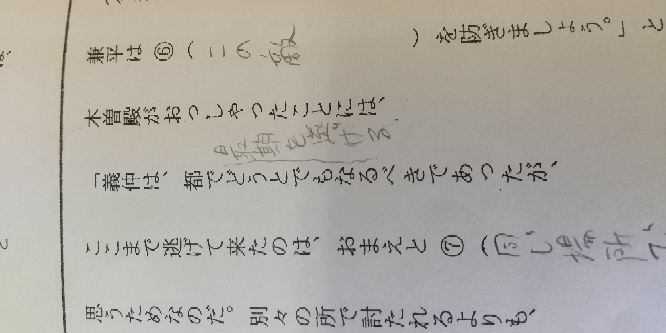 兼平は⑥（この敵　）を防ぎましょう。」と
木曽殿がおっしゃったことには、
最期を遂げる
「義仲は、都でどうとでもなるべきであったが、
ここまで逃げて来たのは、おまえと⑦（同じ場所で
思うためなのだ。別々の所で討たれるよりも、